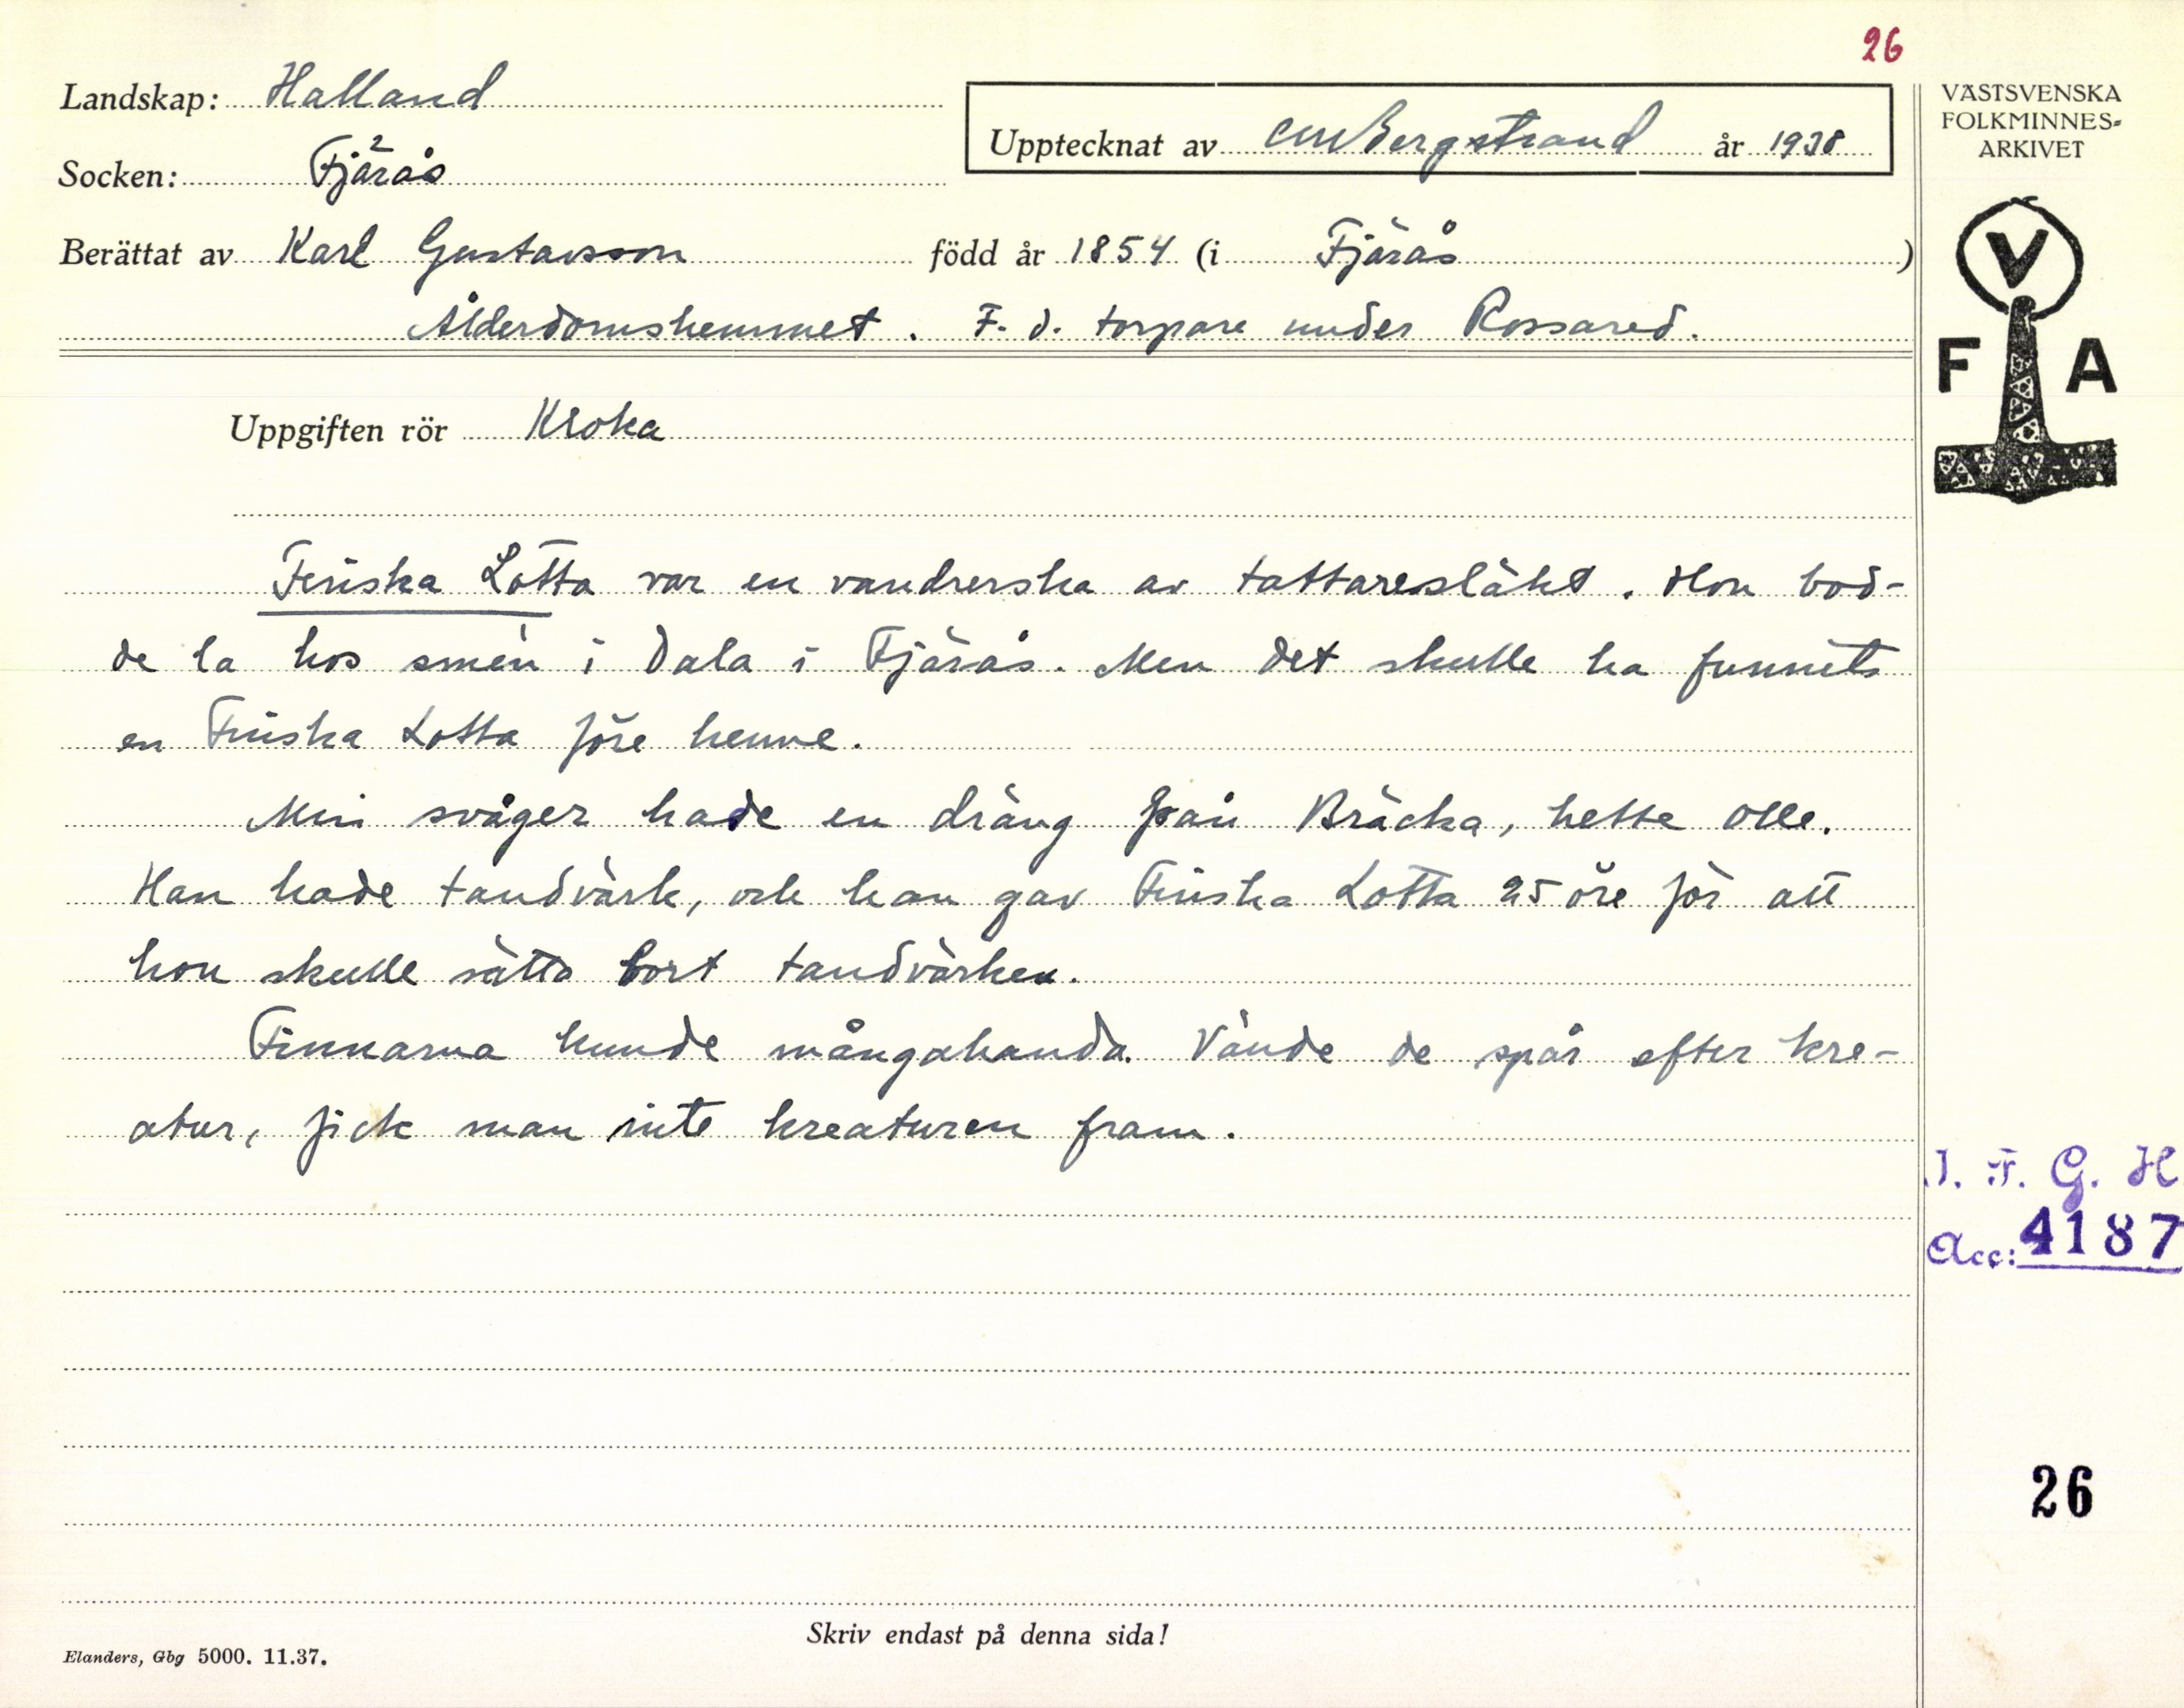 26
Landskap: Halland
Upptecknat av CM Bergstrand år 1938
Socken: Fjärås
Berättat av Karl Gustavsson född år 1854 (i Fjärås )
Ålderdomshemmet. F. d. torpare under Rossared.
VÄSTSVENSKA
FOLKMINNES-
ARKIVET
V
F A
Uppgiften rör Kloka
Finska Lotta var en vandrerska av tattaresläkt. Hon bod-
de la hos smén i Dala i Fjärås. Men det skulle ha funnits
en Finska Lotta före henne.
Min svåger hade en dräng från Bräcka, hette Olle.
Han hade tandvärk, och han gav Finska Lotta 25 öre för att
hon skulle sätta bort tandvärken.
Finnarna kunde mångahanda. Vände de spår efter kre-
atur, fick man inte kreaturen fram.
I. F. G. H
Acc: 4187
26
Skriv endast på denna sida!
Elanders, Gbg 5000. 11.37.